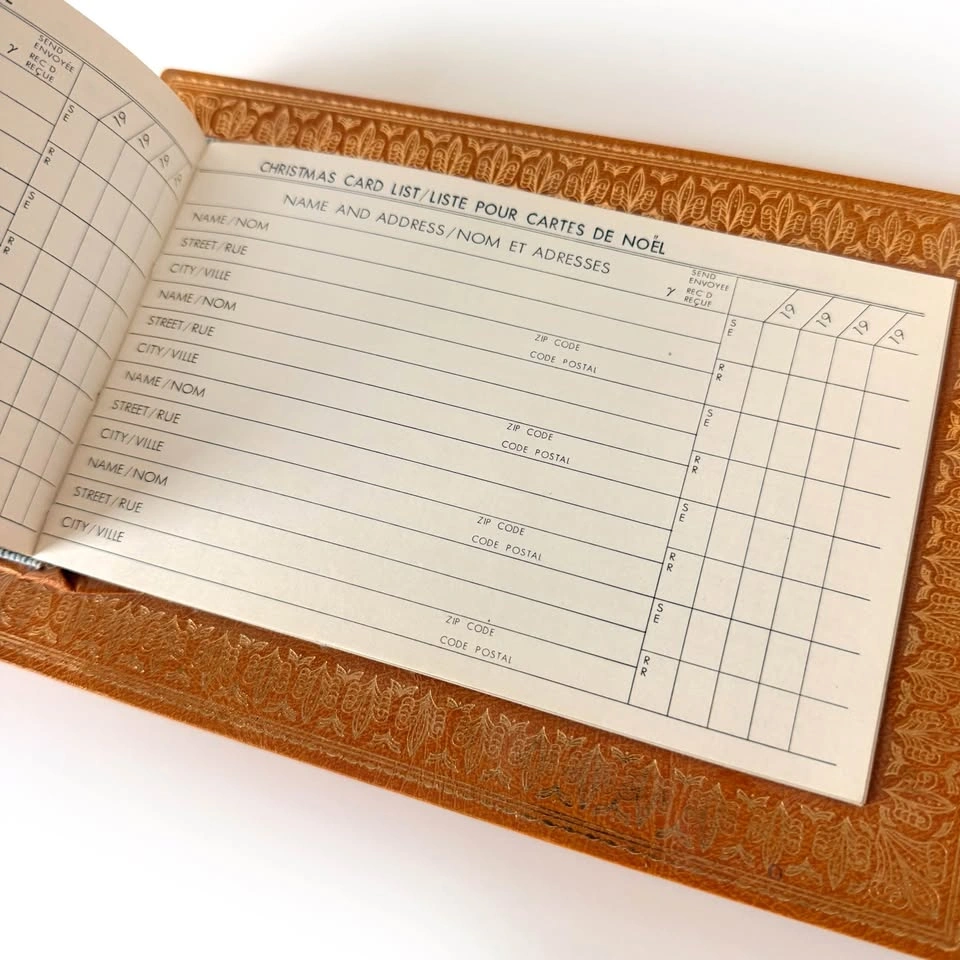 SEND
ENVOYÉE
γ REC'D
REÇUE
19 19 19 19
S
E
R
R
S
E
R
R
CHRISTMAS CARD LIST/LISTE POUR CARTES DE NOËL
NAME AND ADDRESS/NOM ET ADRESSES
SEND
ENVOYÉE
γ REC'D
REÇUE
19 19 19 19
NAME/NOM
S
E
STREET/RUE
ZIP CODE
R
R
CITY/VILLE
CODE POSTAL
NAME/NOM
S
E
STREET/RUE
ZIP CODE
R
R
CITY/VILLE
CODE POSTAL
NAME/NOM
S
E
STREET/RUE
ZIP CODE
R
R
CITY/VILLE
CODE POSTAL
NAME/NOM
S
E
STREET/RUE
ZIP CODE
R
R
CITY/VILLE
CODE POSTAL